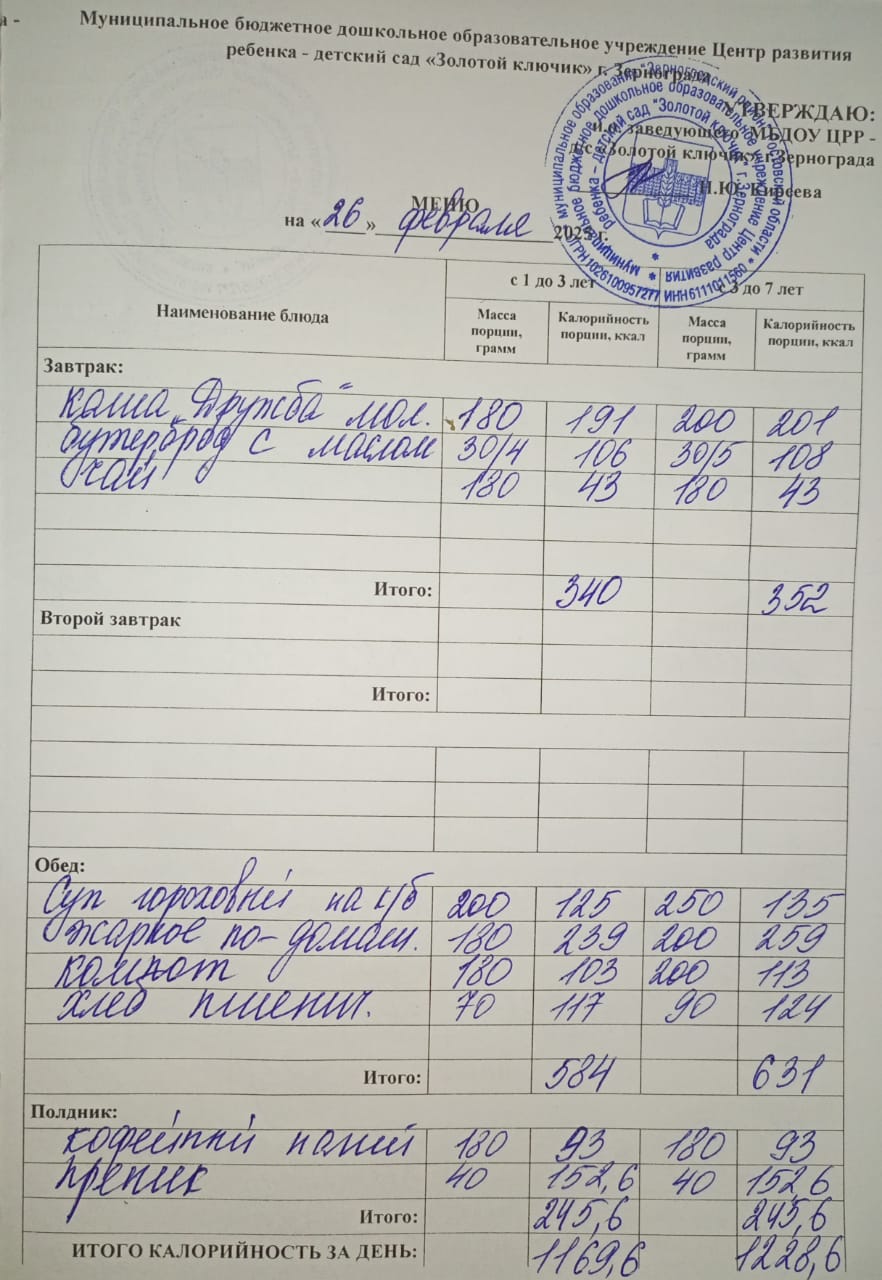 а -
Муниципальное бюджетное дошкольное образовательное учреждение Центр развития
ребенка - детский сад «Золотой ключик» г. Зернограда
УТВЕРЖДАЮ:
и.о. заведующего МБДОУ ЦРР -
д/с «Золотой ключик» г.Зернограда
Н.Ю. Киреева
МЕНЮ
на « 26 » февраля 2025 г.
Наименование блюда с 1 до 3 лет с 3 до 7 лет
Масса порции, грамм Калорийность порции, ккал Масса порции, грамм Калорийность порции, ккал
Завтрак:
каша „Дружба" мол. 180 191 200 201
бутерброд с маслом 30/4 106 30/5 108
чай 180 43 180 43
Итого: 340 352
Второй завтрак
Итого:
Обед:
Суп гороховый на к/б 200 125 250 135
жаркое по-домаш. 180 239 200 259
компот 180 103 200 113
хлеб пшенич. 70 117 90 124
Итого: 584 631
Полдник:
кофейный напий 180 93 180 93
преник 40 152,6 40 152,6
Итого: 245,6 245,6
ИТОГО КАЛОРИЙНОСТЬ ЗА ДЕНЬ: 1169,6 1228,6
муниципальное образование "Зерноградский район" Ростовской области * ОГРН 1026100957277 ИНН 6111011560 *
муниципальное бюджетное дошкольное образовательное учреждение Центр развития
ребенка – детский сад "Золотой ключик" г. Зернограда